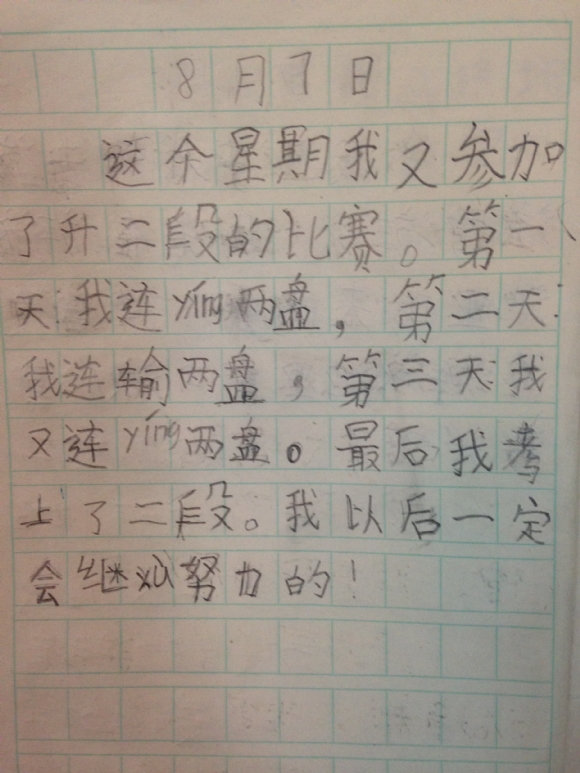 8月7日
这个星期我又参加
了升二段的比赛。第一
天:我连yíng两盘，第二天:
我连输两盘，第三天:我
又连yíng两盘。最后我考
上了二段。我以后一定
会继努力的！